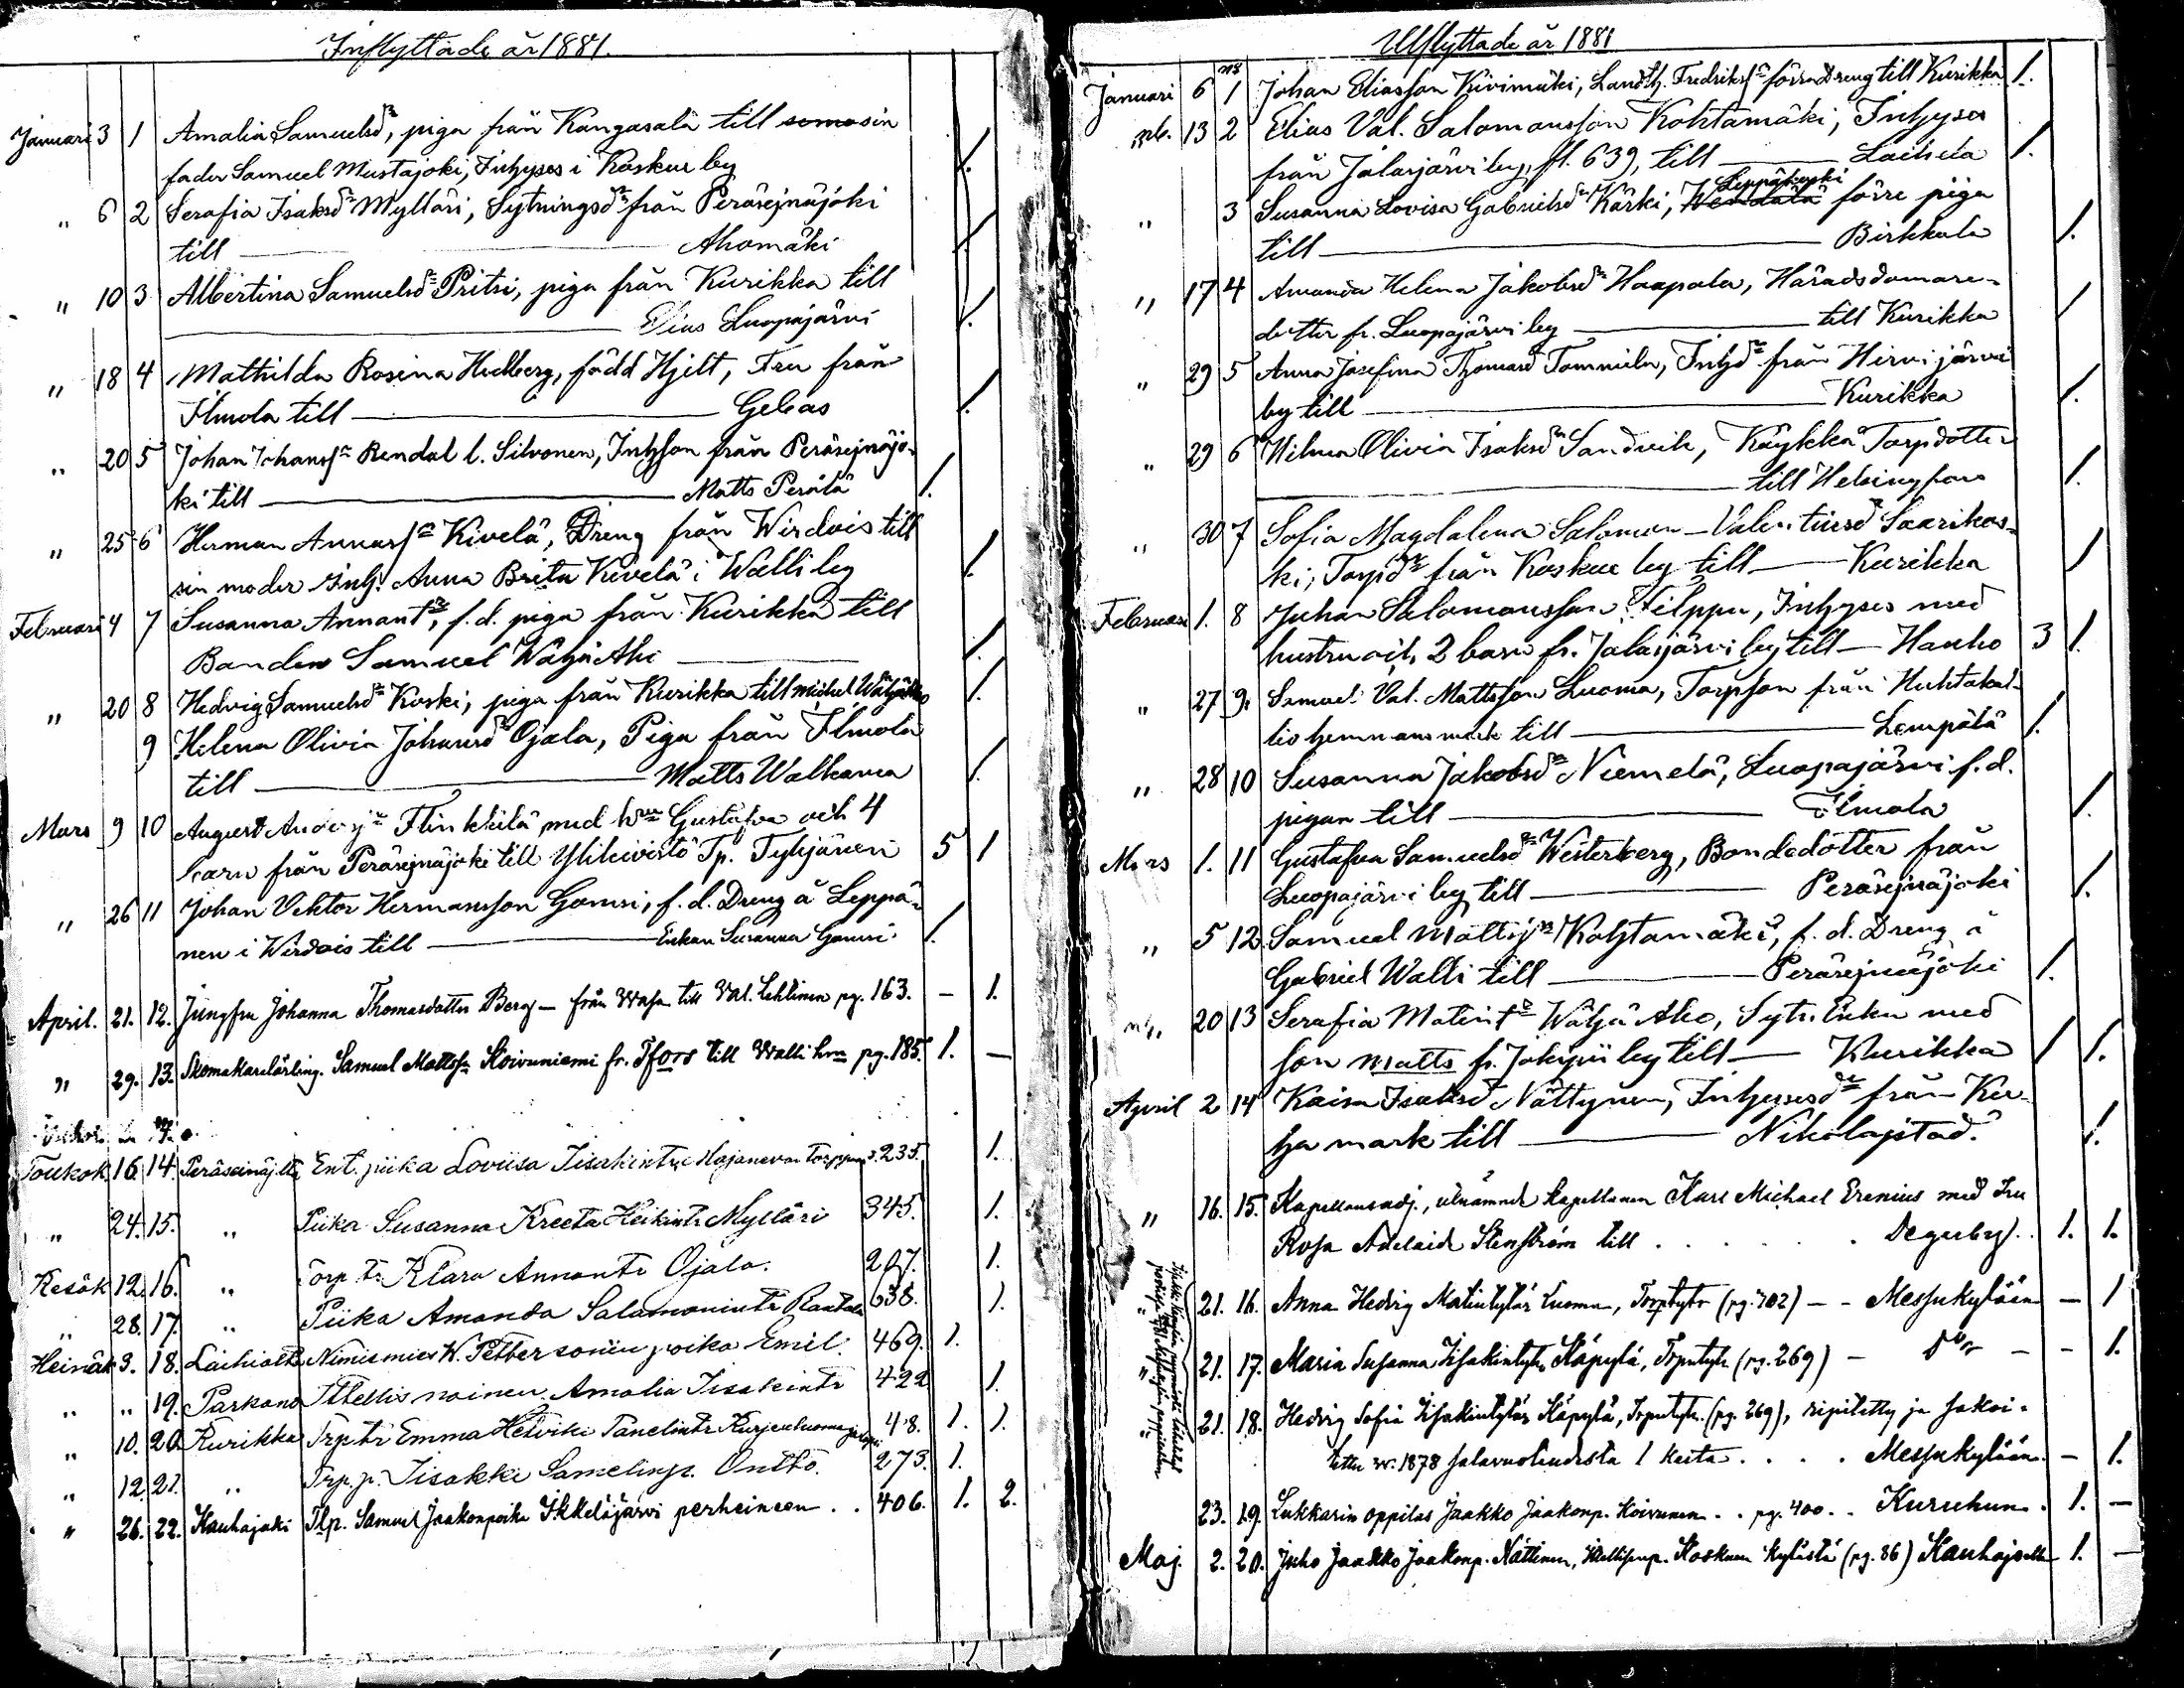 Inflyttade år 1881.
Januari 3 1 Amalia Samuelsdr, piga från Kangasala till sin
fader Samuel Mustajoki, Inhyses i Koskue by 1.
" 6 2 Serafia Isaksdr Mylläri, Sytningsdr från Peräsejnäjoki
till Ahomäki 1.
" 10 3 Albertina Samuelsdr Pritsi, piga från Kurikka till
Elias Luopajärvi 1.
" 18 4 Mathilda Rosina Hedberg, född Hjelt, Fru från
Ilmola till Gebas 1.
" 20 5 Johan Johanss. Rendal l. Silvonen, Inhyson från Peräsejnäjo-
ki till Matts Perälä 1.
" 25 6 Herman Annanss. Kivelä, Dreng från Wirdois till
sin moder Inh. Anna Brita Kivelä i Walli by 1.
Februari 4 7 Susanna Annantr, f. d. piga från Kurikka till
Bonden Samuel Wäljä Aho 1.
" 20 8 Hedvig Samuelsdr Koski, piga från Kurikka till Michel Wäljä Aho 1.
9 Helena Olivia Johansdr Ojala, Piga från Ilmola
till Matts Walkama 1.
Mars 9 10 August Flinkkilä med hru Gustafva och 4
barn från Peräsejnäjoki till Ylikivistö Tp. Tyhjänen 5 1
" 26 11 Johan Viktor Hermansson Gamsi, f. d. Dreng å Leppä-
nen i Wirdois till Enkan Susanna Gamsi 1.
April. 21. 12. Jungfru Johanna Thomasdotter Berg – från Wasa till Val. Lehtinen pg. 163. – 1.
" 29. 13. Skomakarelärling. Samuel Mattss. Koivuniemi fr. Tfors till Walli hm pg. 185. 1. –
Toukok. 16. 14. Peräseinäj.lta Ent. piika Loviisa Iisakintr Majaneva Torppa s. 235. 1.
" 24. 15. " Piika Susanna Kreeta Heikintr Mylläri 345. 1.
Kesäk. 12. 16. " Torp. tr. Klara Annantr Ojala. 207. 1.
" 28. 17. " Piika Amanda Salamonintr Rantala 638. 1.
Heinäk. 3. 18. Laihialta Nimismies W. Petterssonin poika Emil. 469. 1.
" " 19. Parkano Itsellis nainen Amalia Iisakintr 422. 1.
" 10. 20. Kurikka Trp. tr Emma Hetviki Tanelintr Kurjenluoma 48. 1. 1.
" 12. 21. " Trp. p. Iisakki Samelinp. Ontto. 273. 1.
" 26. 22. Kauhajoki Tlp. Samuel Jaakonpoika Ikkeläjärvi perheineen . . 406. 1. 2.
Utflyttade år 1881
Januari 6 1 Johan Eliasson Kivimäki, Landth. Fredrikss. förra Dreng till Kurikka 1.
13 2 Elias Val. Salomonsson Kohtamäki, Inhyses
från Jalasjärvi by, fl. 639, till Laihela 1.
" 3 Susanna Lovisa Gabrielsdr Kärki, Leppäkoski förre piga
till Birkkala 1.
" 17 4 Amanda Helena Jakobsdr Haapala, Häradsdomare-
dotter fr. Luopajärvi by till Kurikka 1
" 29 5 Anna Josefina Thomasd Tammila, Inhdr från Hirvijärvi
by till Kurikka 1.
" 29 6 Wilma Olivia Isaksdr Sandvik, Käykkä Torpdotter
till Helsingfors 1.
" 30 7 Sofia Magdalena Salomon-Valentinsdr Saarikos-
ki, Torpdr från Koskue by till Kurikka 1
Februari 1. 8 Juhan Salomonsson Filppu, Inhyses med
hustru och 2 barn fr. Jalasjärvi by till – Hauho 3 1.
" 27 9. Samuel Val. Mattsson Luoma, Torpson från Huhtakal-
lio hemmansmark till Lempälä 1.
" 28 10 Susanna Jakobsdr Niemelä, Luopajärvi f. d.
pigan till Ilmola 1.
Mars 1. 11 Gustafva Samuelsdr Westerberg, Bondedotter från
Luopajärvi by till Peräsejnäjoki 1.
" 5 12 Samuel Mattss. Kohtamäki, f. d. Dreng å
Gabriel Walli till Peräsejnäjoki 1.
20 13 Serafia Matintr Wäljä Aho, Sytn. Enka med
son Matts fr. Jokipii by till – Kurikka 1 1.
April 2 14 Kaisa Isaksd Nättynen, Inhysesdr från Ku-
ha mark till Nikolajstad. 1.
" 16. 15. Kapellansadj., utnämnde kapellanen Karl Michael Erenius med Fru
Rosa Adelaide Stenström till . . . . . Degerby. . 1. 1.
21. 16. Anna Hedvig Matintytär Luoma, Torptytr (pg. 702) – – Messukylään – 1
21. 17. Maria Susanna Iisakintytr Käpylä, Torptytr (pg. 269) – – – 1.
21. 18. Hedvig Sofia Iisakintytär Käpylä, Torptytr (pg. 269), ripitetty ja
w. 1878 1 kerta . . . . Messukylään. – 1.
23. 19. Lukkarin oppilas Jaakko Jaakonp. Koivunen . . pg. 400. . Kuruhun. 1. –
Maj. 2. 20. Juho Jaakko Jaakonp. Nättinen, Itsellisenp. Koskuen kylästä (pg. 86) Kauhajoelle 1. –